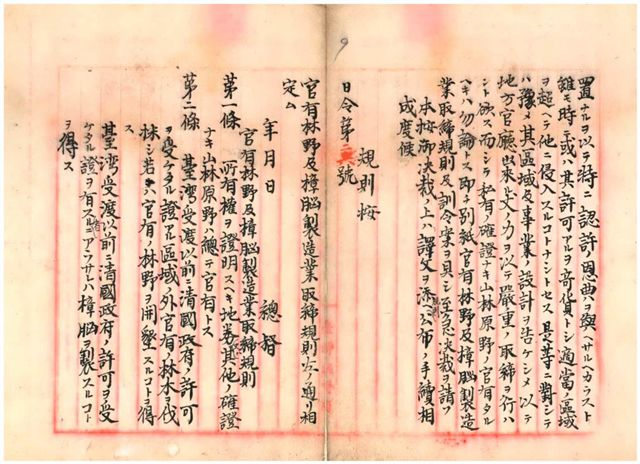 置ナルヲ以テ特ニ認許恩典ヲ與ヘサルヘカラスト
雖モ時ニ或ハ其許可アルヲ奇貨トシ適當ノ區域
ヲ超ヘテ他ニ侵入スルコトナシトセス是等ニ對シテ
ハ豫メ其區域及事業ノ設計ヲ告ケシメ以テ
地方官廳出來得丈ノ力ヲ以テ嚴重ノ取締ヲ行ハ
ント欲ス而シテ私有ノ確證ナキ山林原野ノ官有タル
ヘキハ勿論トス即チ別紙官有林野及樟腦製造
業取締規則及訓令案ヲ具シ至急決裁ヲ請フ
本按御決裁ノ上ハ譯文ヲ添ヘ公布ノ手續相
成度候
規則按
日令第 號
官有林野及樟腦製造業取締規則左ノ通リ相
定ム
年月日
總督
官有林野及樟腦製造業取締規則
第一條 所有權ヲ證明スヘキ地券又ハ其他ノ確證
ナキ山林原野ハ總テ官有トス
第二條 臺灣受渡以前ニ清國政府ノ許可
ヲ受ケタル證アル區域ノ外官有ノ林木ヲ伐
採シ若クハ官有ノ林野ヲ開墾スルコトヲ得
ス
臺灣受渡以前ニ清國政府ノ許可ヲ受
ケタル證ヲ有スルニアラサレハ樟腦ヲ製スルコト
ヲ得ス